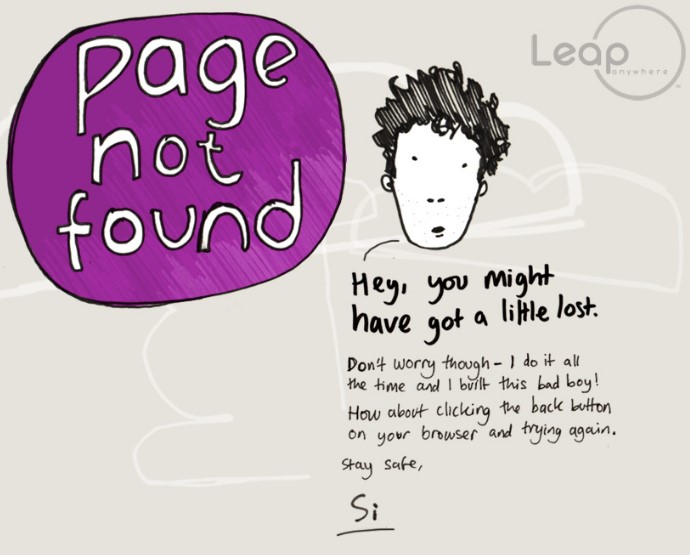 page
not
found
Leap
anywhere
TM
Hey, you might
have got a little lost.
Don't worry though - I do it all
the time and I built this bad boy!
How about clicking the back button
on your browser and trying again.
Stay safe,
Si